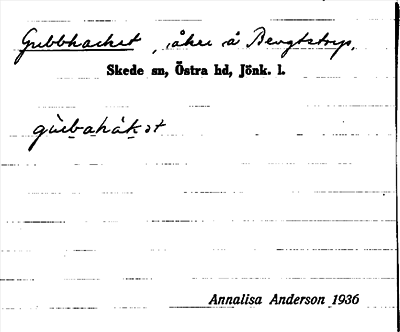 Gubbhacket, åker å Bengtstorp.
Skede sn, Östra hd, Jönk. l.
gùbahák ət
Annalisa Anderson 1936